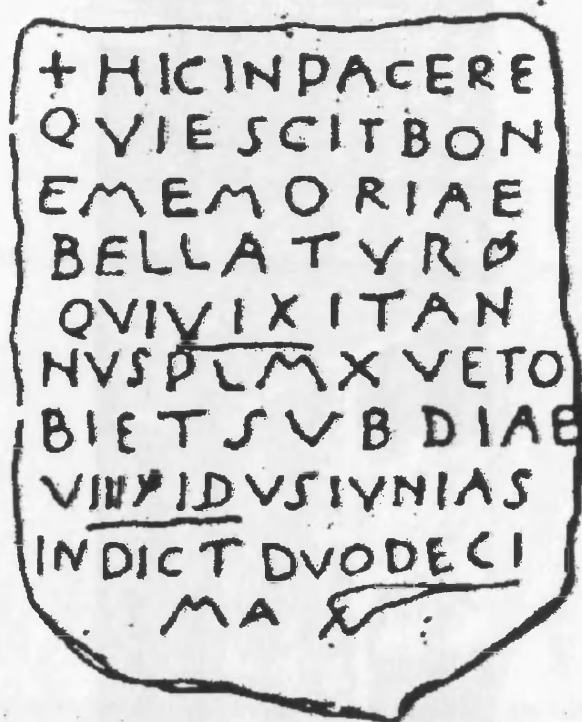 +HICINPACERE
QVIESCITBON
EMEMORIAE
BELLATVRØ
QVIVIXITAN
NVSPLMXVETO
BIETSVBDIAE
VIIIIYIDVSIVNIAS
INDICTDVODECI
MA